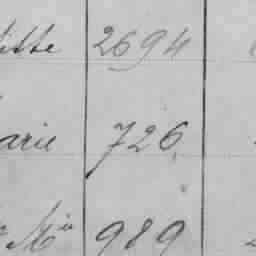 itte 2694
arie 726
Mie 989